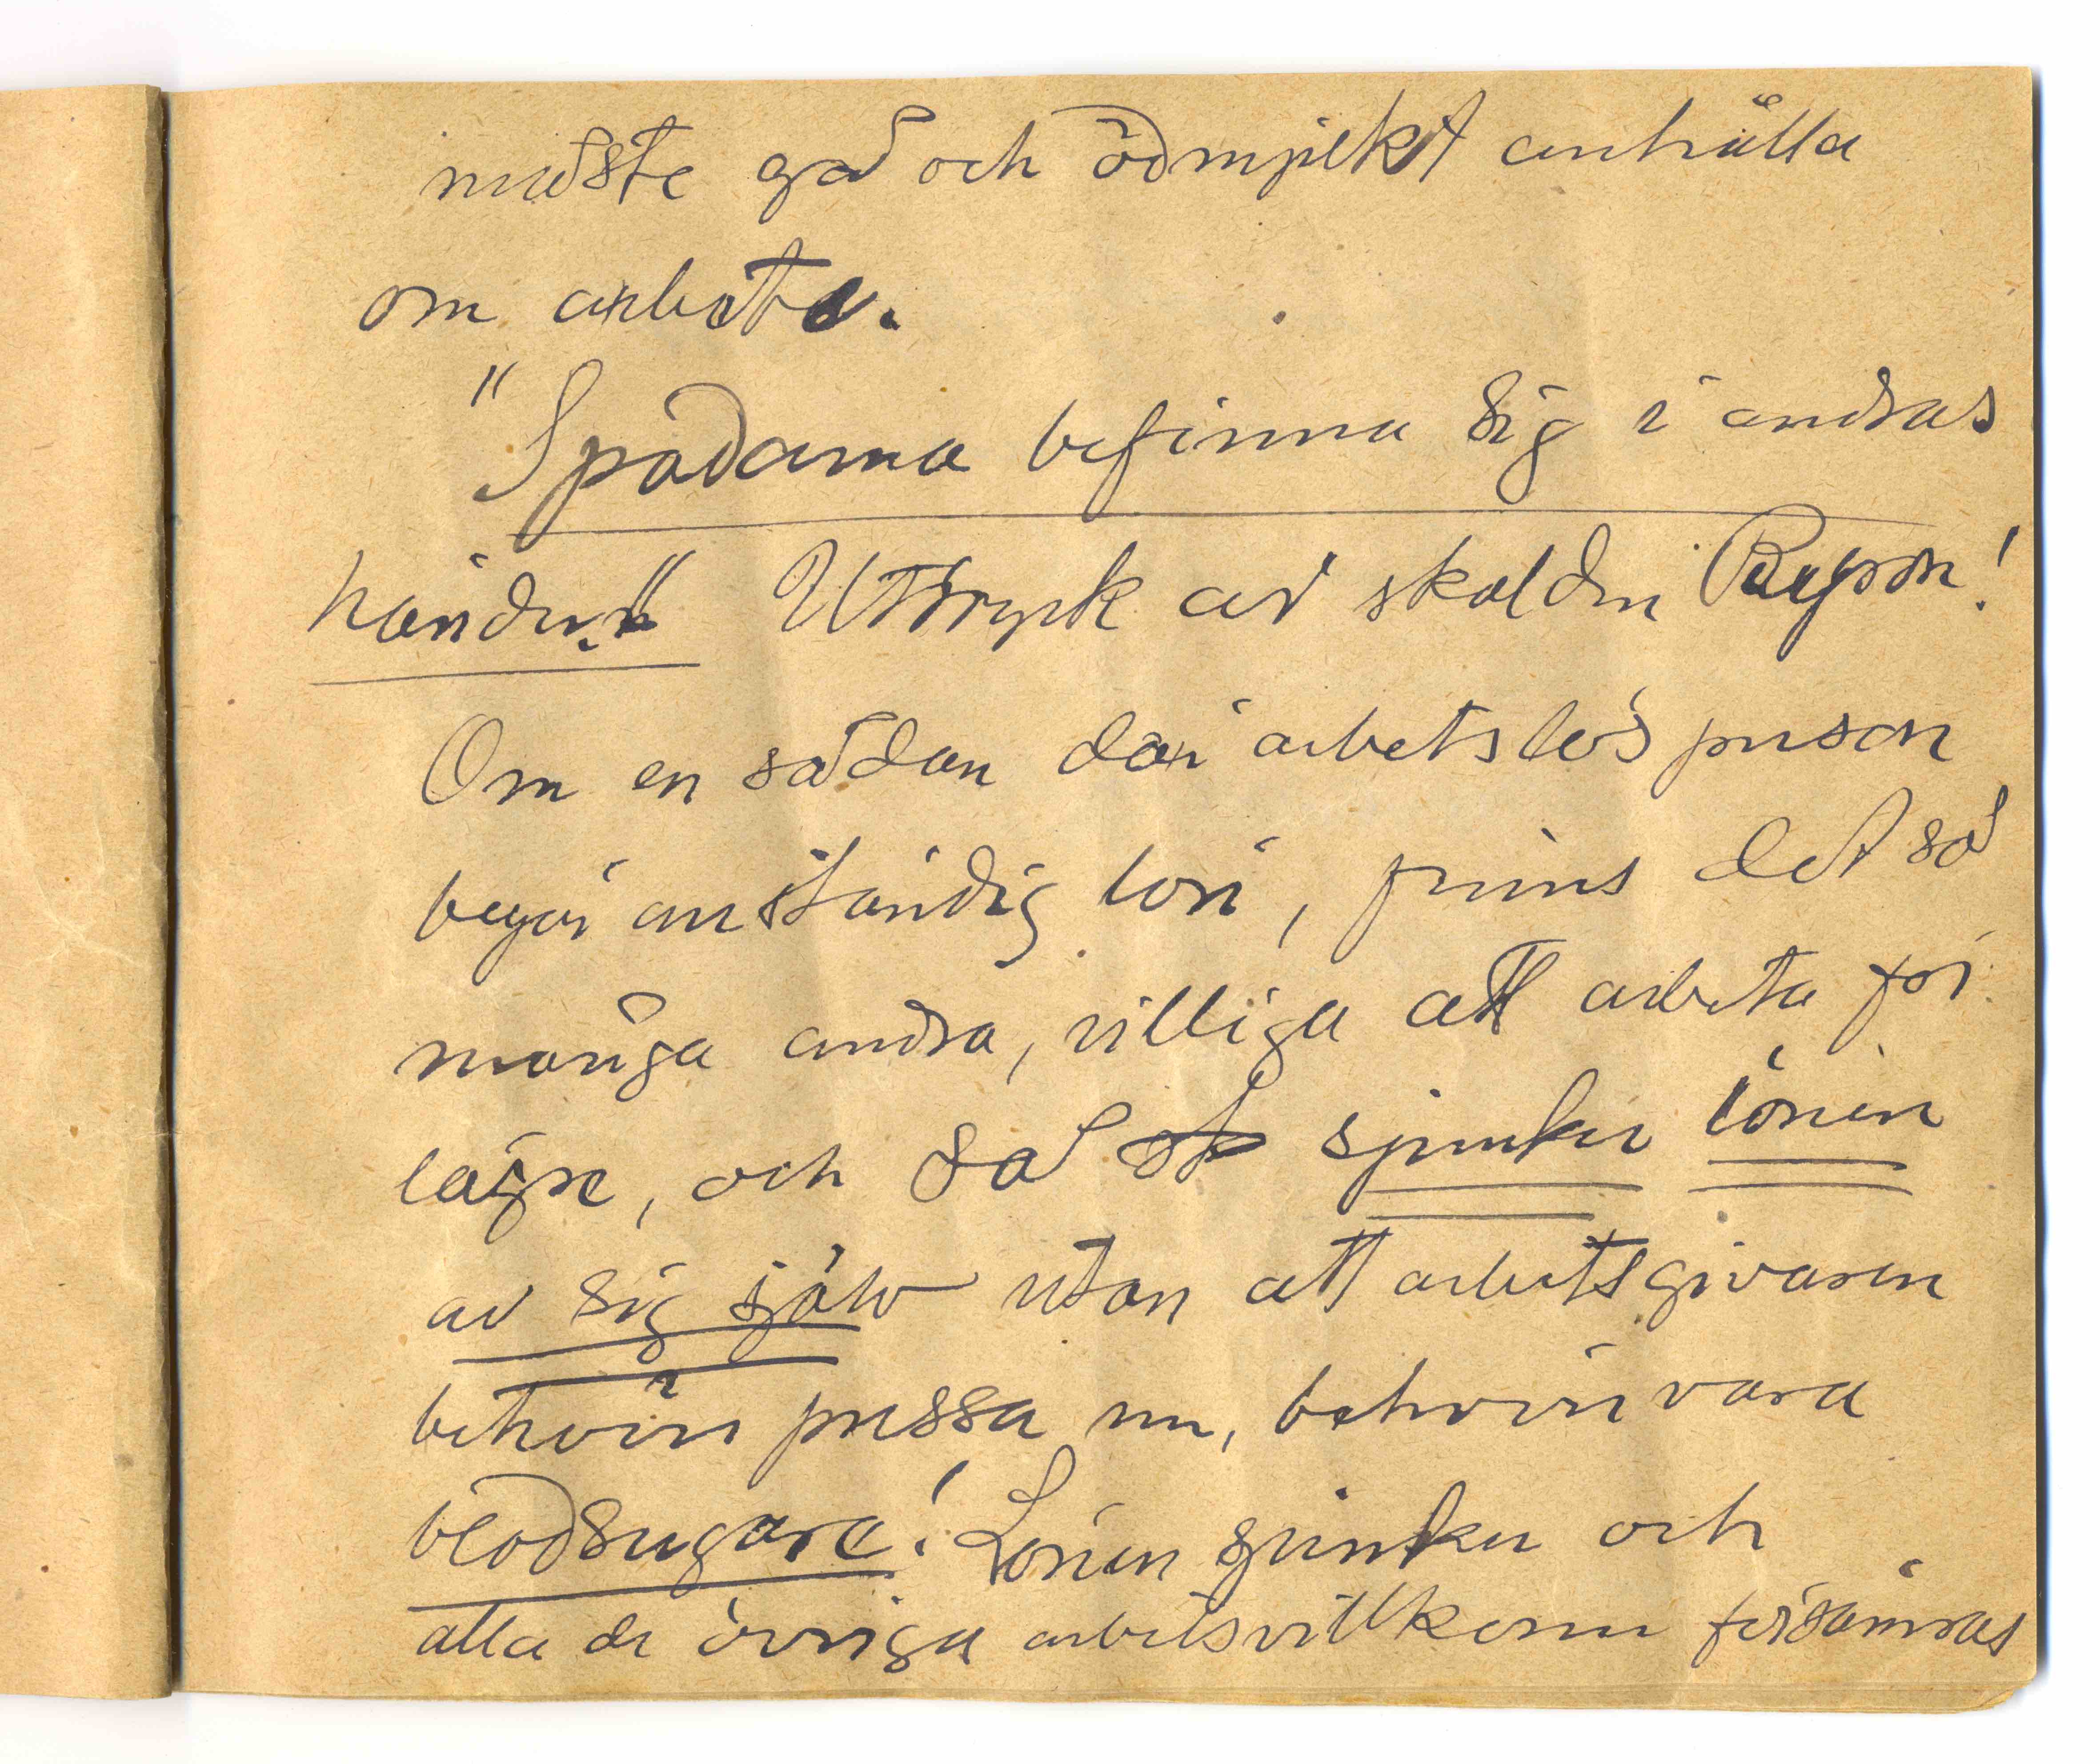 måste gå och ödmjukt anhålla
om arbete.
"Spadarna befinna sig i andras
händer." Uttryck av skalden Byron!
Om en sådan där arbetslös person
begär anständig lön, finns det så
många andra, villiga att arbeta för
lägre, och så sjunker lönen
av sig själv utan att arbetsgivaren
behöver pressa ner, behöver vara
blodsugare! Lönen sjunker och
alla de övriga arbetsvillkoren försämras